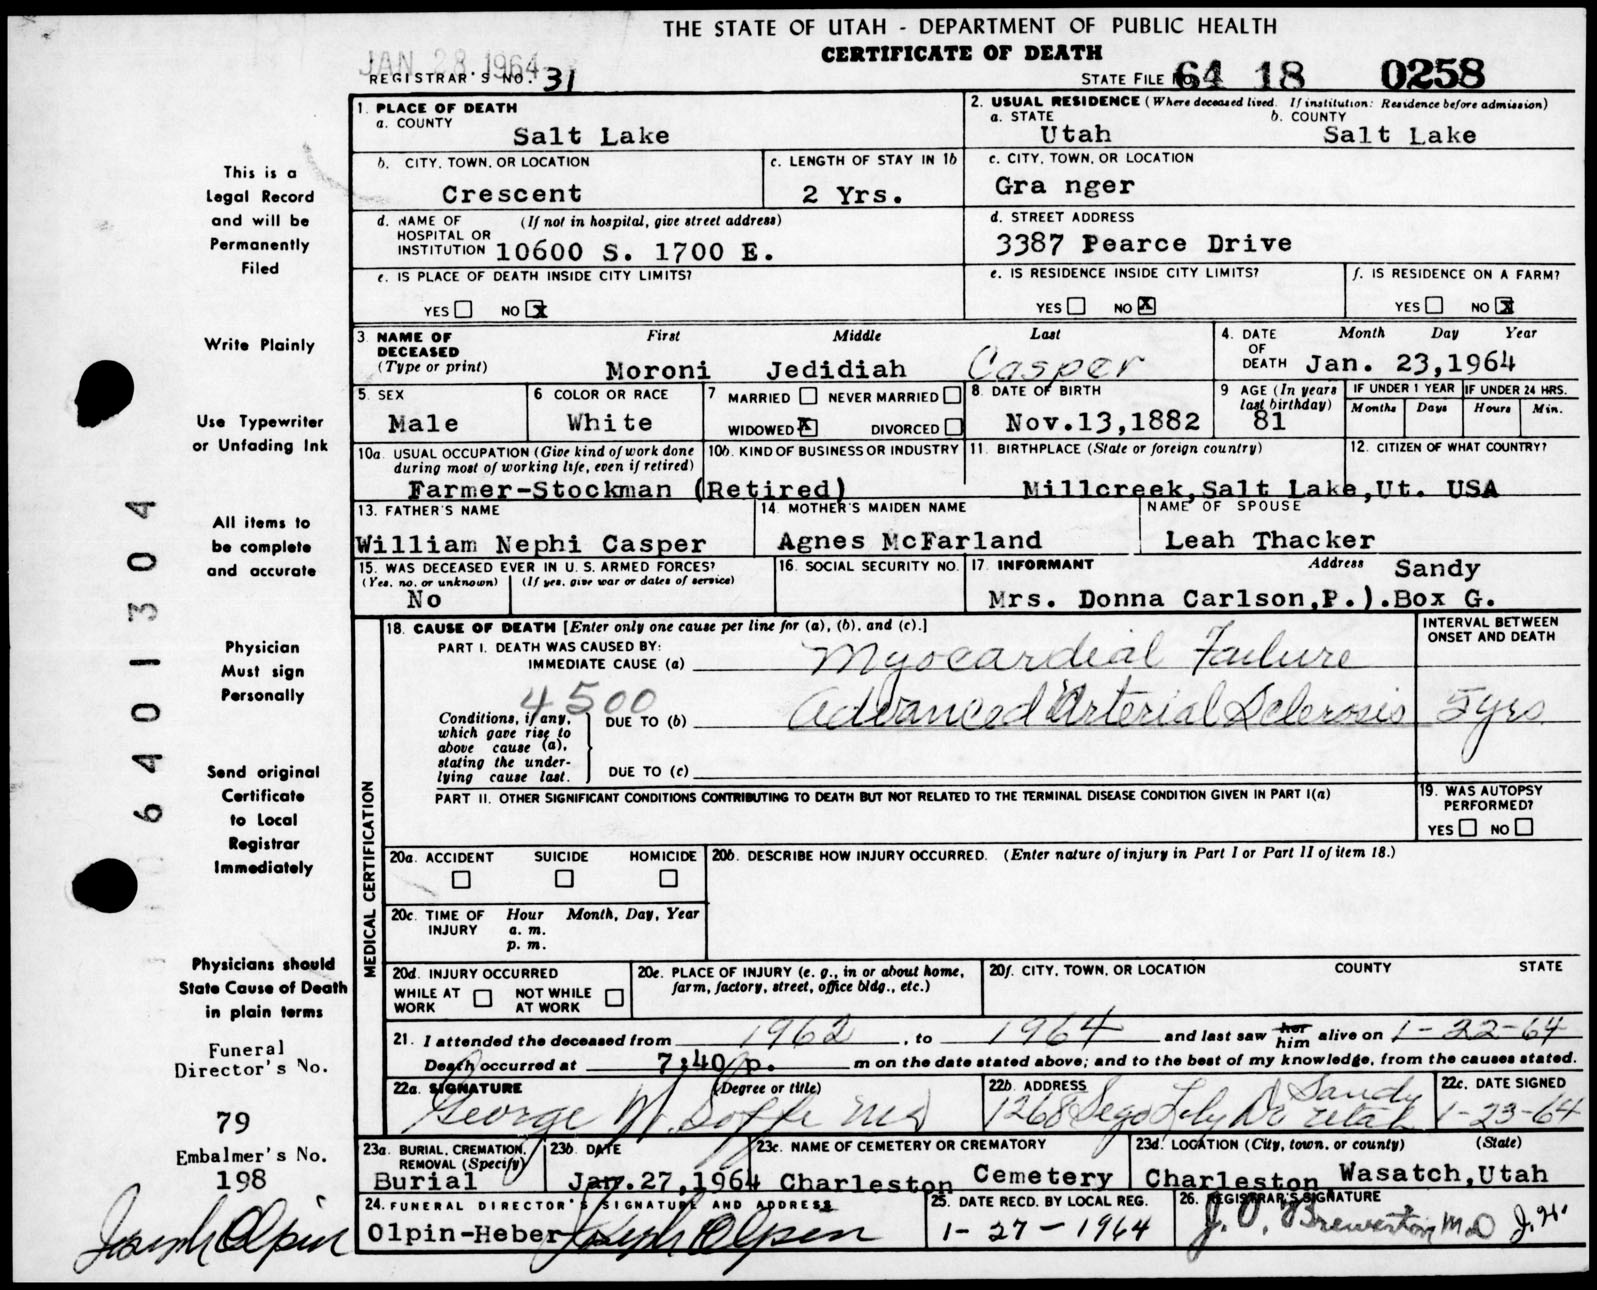 THE STATE OF UTAH - DEPARTMENT OF PUBLIC HEALTH
CERTIFICATE OF DEATH
JAN 28 1964
REGISTRAR'S NO. 31
STATE FILE NO. 64 18 0258
1. PLACE OF DEATH
a. COUNTY
Salt Lake
2. USUAL RESIDENCE (Where deceased lived. If institution: Residence before admission)
a. STATE b. COUNTY
Utah Salt Lake
b. CITY, TOWN, OR LOCATION
Crescent
c. LENGTH OF STAY IN 1b
2 Yrs.
c. CITY, TOWN, OR LOCATION
Gra nger
d. NAME OF HOSPITAL OR INSTITUTION (If not in hospital, give street address)
10600 S. 1700 E.
d. STREET ADDRESS
3387 Pearce Drive
e. IS PLACE OF DEATH INSIDE CITY LIMITS?
YES NO X
e. IS RESIDENCE INSIDE CITY LIMITS?
YES NO X
f. IS RESIDENCE ON A FARM?
YES NO X
3. NAME OF DECEASED (Type or print)
First Middle Last
Moroni Jedidiah Casper
4. DATE OF DEATH Month Day Year
Jan. 23,1964
5. SEX
Male
6 COLOR OR RACE
White
7 MARRIED NEVER MARRIED
WIDOWED X DIVORCED
8. DATE OF BIRTH
Nov.13,1882
9 AGE (In years last birthday)
81
IF UNDER 1 YEAR IF UNDER 24 HRS.
Months Days Hours Min.
10a. USUAL OCCUPATION (Give kind of work done during most of working life, even if retired)
10b. KIND OF BUSINESS OR INDUSTRY
Farmer-Stockman (Retired)
11. BIRTHPLACE (State or foreign country)
12. CITIZEN OF WHAT COUNTRY?
Millcreek,Salt Lake,Ut. USA
13. FATHER'S NAME
William Nephi Casper
14. MOTHER'S MAIDEN NAME
Agnes McFarland
NAME OF SPOUSE
Leah Thacker
15. WAS DECEASED EVER IN U.S. ARMED FORCES?
(Yes, no, or unknown) (If yes, give war or dates of service)
No
16. SOCIAL SECURITY NO.
17. INFORMANT Address Sandy
Mrs. Donna Carlson,P.).Box G.
MEDICAL CERTIFICATION
18. CAUSE OF DEATH [Enter only one cause per line for (a), (b), and (c).]
INTERVAL BETWEEN ONSET AND DEATH
PART I. DEATH WAS CAUSED BY:
IMMEDIATE CAUSE (a) Myocardial Failure
4500
Conditions, if any, which gave rise to above cause (a), stating the underlying cause last.
DUE TO (b) Advanced Arterial Sclerosis 5 yrs
DUE TO (c)
PART II. OTHER SIGNIFICANT CONDITIONS CONTRIBUTING TO DEATH BUT NOT RELATED TO THE TERMINAL DISEASE CONDITION GIVEN IN PART I(a)
19. WAS AUTOPSY PERFORMED?
YES NO
20a. ACCIDENT SUICIDE HOMICIDE
20b. DESCRIBE HOW INJURY OCCURRED. (Enter nature of injury in Part I or Part II of item 18.)
20c. TIME OF INJURY Hour Month, Day, Year
a. m.
p. m.
20d. INJURY OCCURRED
WHILE AT WORK NOT WHILE AT WORK
20e. PLACE OF INJURY (e. g., in or about home, farm, factory, street, office bldg., etc.)
20f. CITY, TOWN, OR LOCATION COUNTY STATE
21. I attended the deceased from 1962, to 1964 and last saw her him alive on 1-22-64
Death occurred at 7:40 p. m on the date stated above; and to the best of my knowledge, from the causes stated.
22a. SIGNATURE (Degree or title)
George M. Soffe MD
22b. ADDRESS
1268 Sego Lily Dr Sandy Utah
22c. DATE SIGNED
1-23-64
23a. BURIAL, CREMATION, REMOVAL (Specify)
Burial
23b. DATE
Jan.27,1964
23c. NAME OF CEMETERY OR CREMATORY
Charleston Cemetery
23d. LOCATION (City, town, or county) (State)
Charleston Wasatch,Utah
24. FUNERAL DIRECTOR'S SIGNATURE AND ADDRESS
Olpin-Heber Joseph Olpin
25. DATE RECD. BY LOCAL REG.
1-27-1964
26. REGISTRAR'S SIGNATURE
J. O. Brewerton M.D J.H.
This is a
Legal Record
and will be
Permanently
Filed
Write Plainly
Use Typewriter
or Unfading Ink
All items to
be complete
and accurate
Physician
Must sign
Personally
Send original
Certificate
to Local
Registrar
Immediately
Physicians should
State Cause of Death
in plain terms
Funeral
Director's No.
79
Embalmer's No.
198
Joseph Olpin
6401304